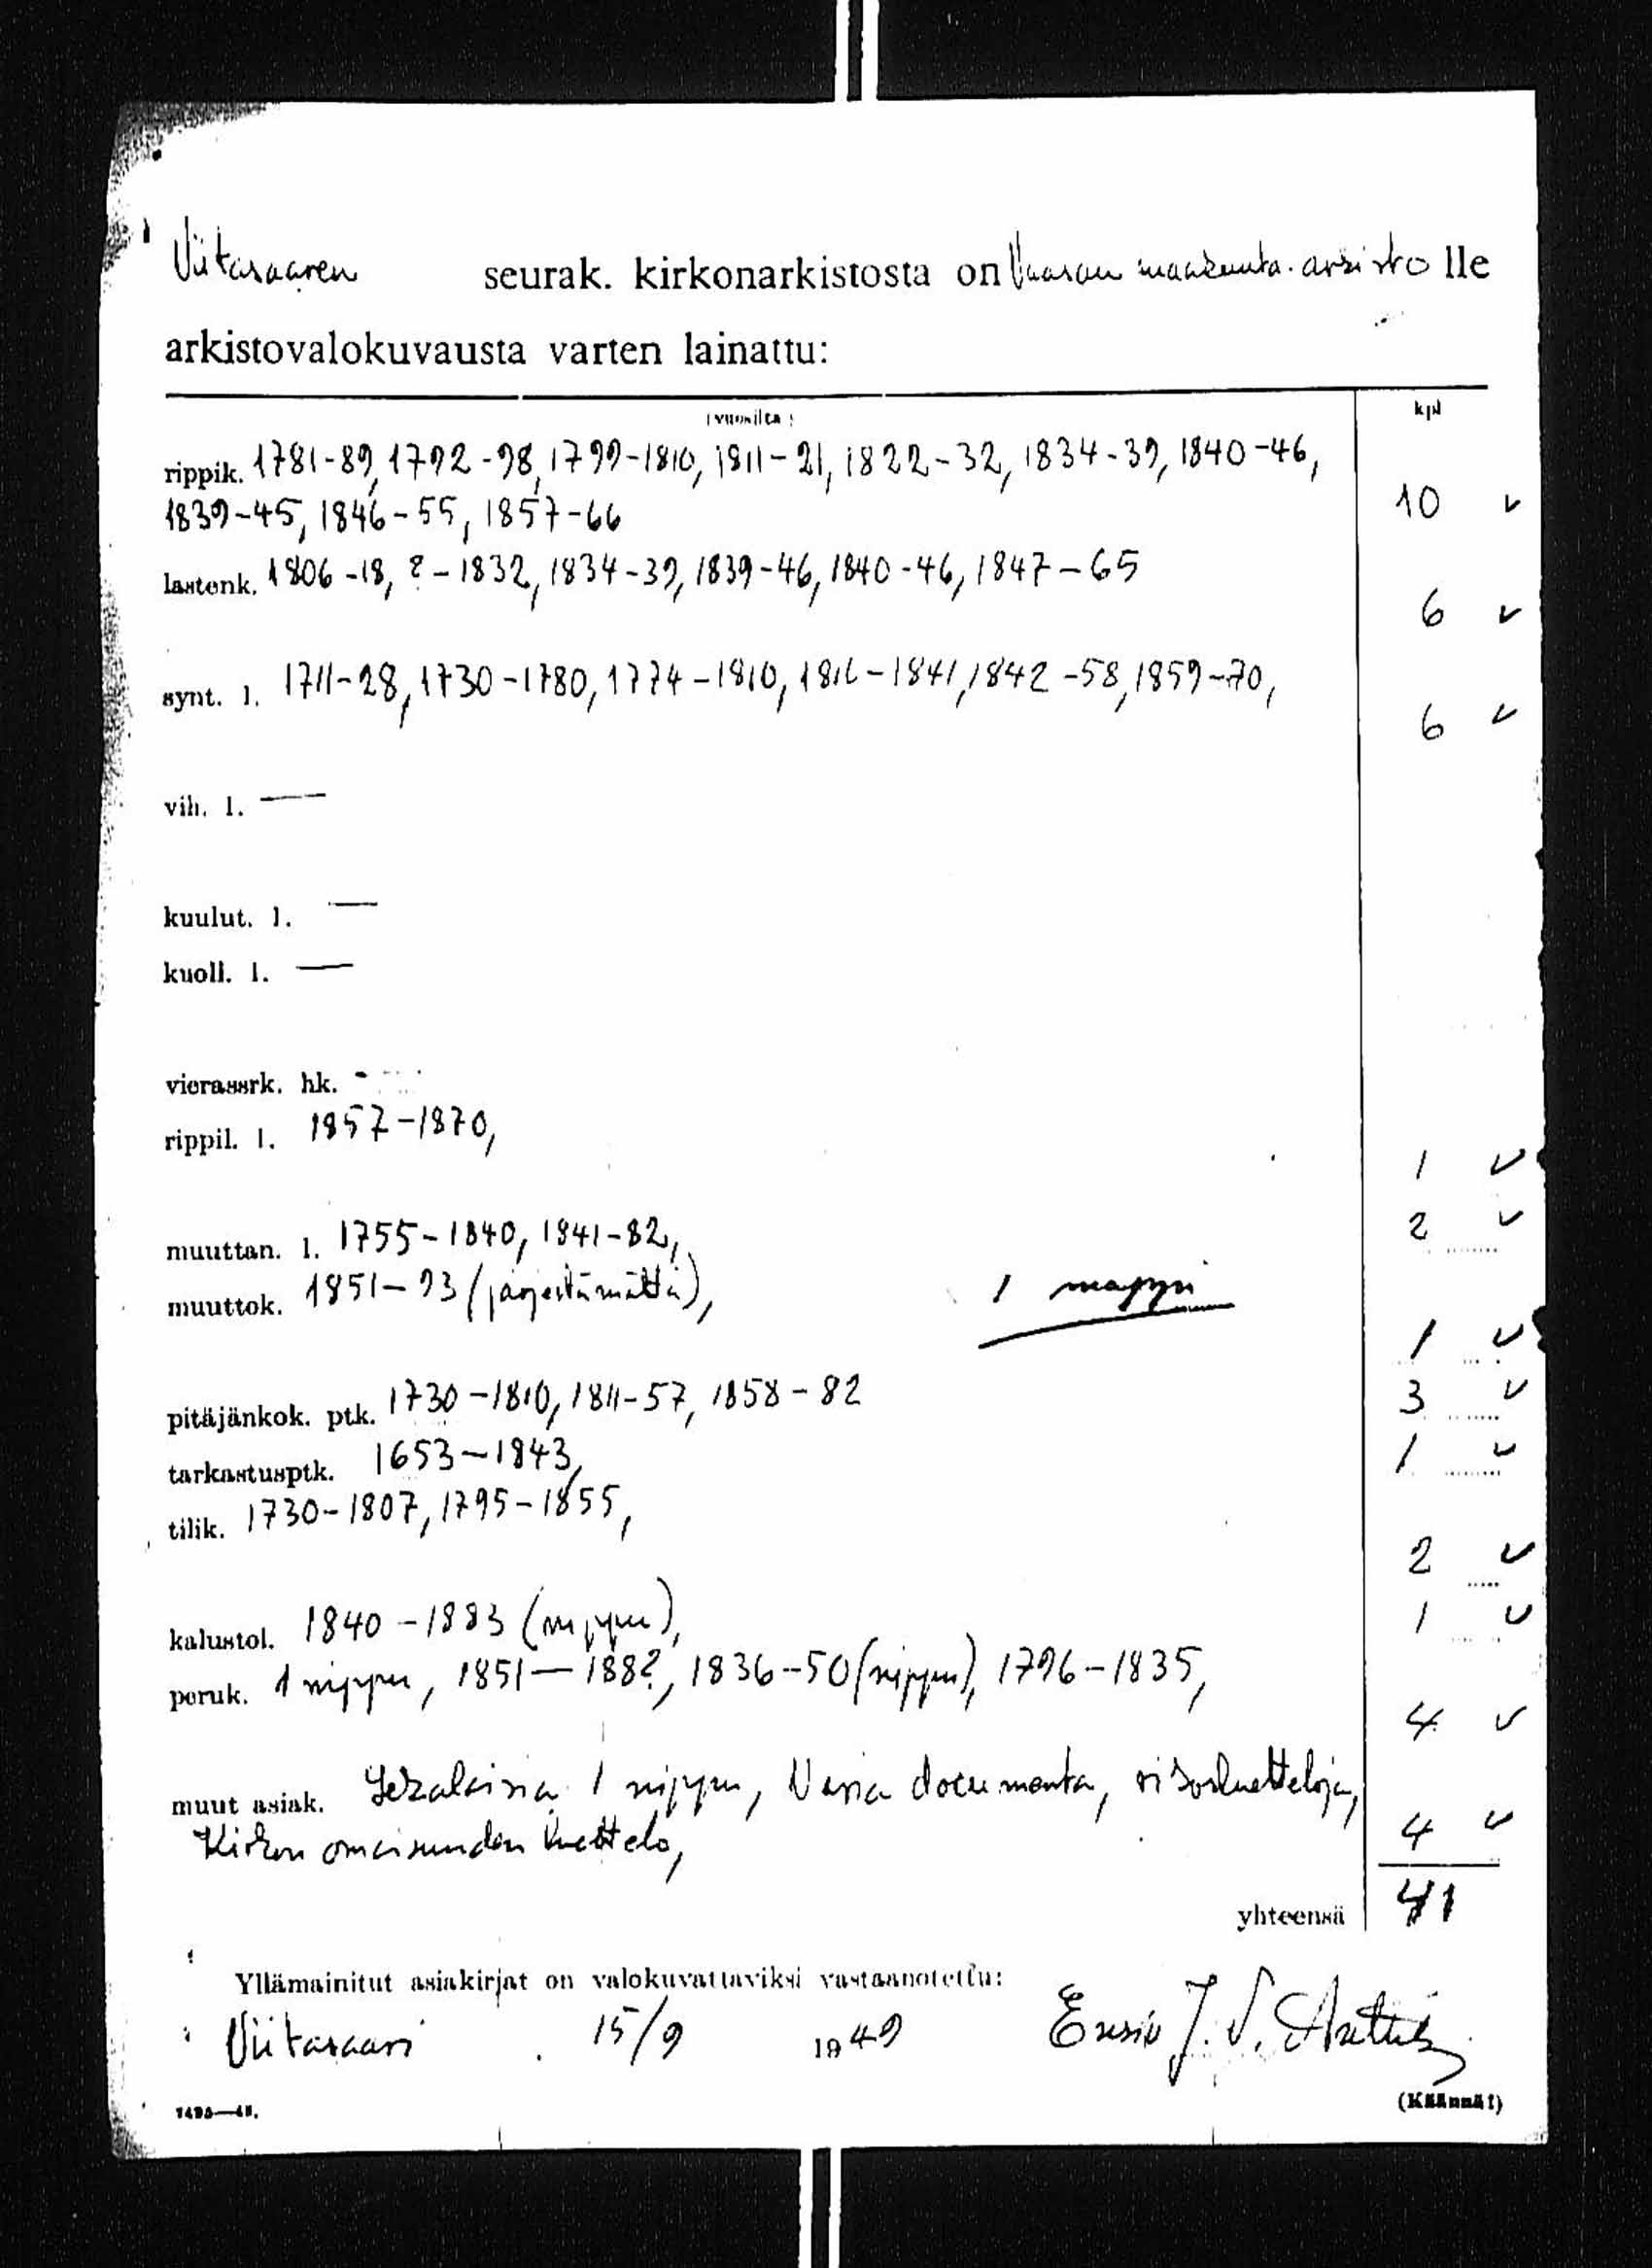 Viitasaaren seurak. kirkonarkistosta on Vaasan maakunta-arkisto lle
arkistovalokuvausta varten lainattu:
(vuosilta) kpl
rippik. 1781-89, 1792-98, 1799-1810, 1811-21, 1822-32, 1834-39, 1840-46,
1839-45, 1846-55, 1857-66 10 ✓
lastenk. 1806-18, ?-1832, 1834-39, 1839-46, 1840-46, 1847-65
6 ✓
synt. l. 1711-28, 1730-1780, 1774-1810, 1811-1841, 1842-58, 1859-70,
6 ✓
vih. l. —
kuulut. l. —
kuoll. l. —
vierassrk. hk. -
rippil. l. 1857-1870,
1 ✓
muuttan. l. 1755-1840, 1841-82, 2 ✓
muuttok. 1851-93 (järjestämättä), 1 mappi
1 ✓
pitäjänkok. ptk. 1730-1810, 1811-57, 1858-82 3 ✓
tarkastusptk. 1653-1843, 1 ✓
tilik. 1730-1807, 1795-1855,
2 ✓
kalustol. 1840-1883 (nippu), 1 ✓
peruk. 1 nippu, 1851-188?, 1836-50 (nippu), 1796-1835,
4 ✓
muut asiak. Sekalaisia 1 nippu, Varia documenta, rikosluetteloja,
Kirkon omaisuuden luettelo, 4 ✓
yhteensä 41
Yllämainitut asiakirjat on valokuvattaviksi vastaanotettu:
Viitasaari 15/9 1949 Ensio J. V.
(Käännä!)